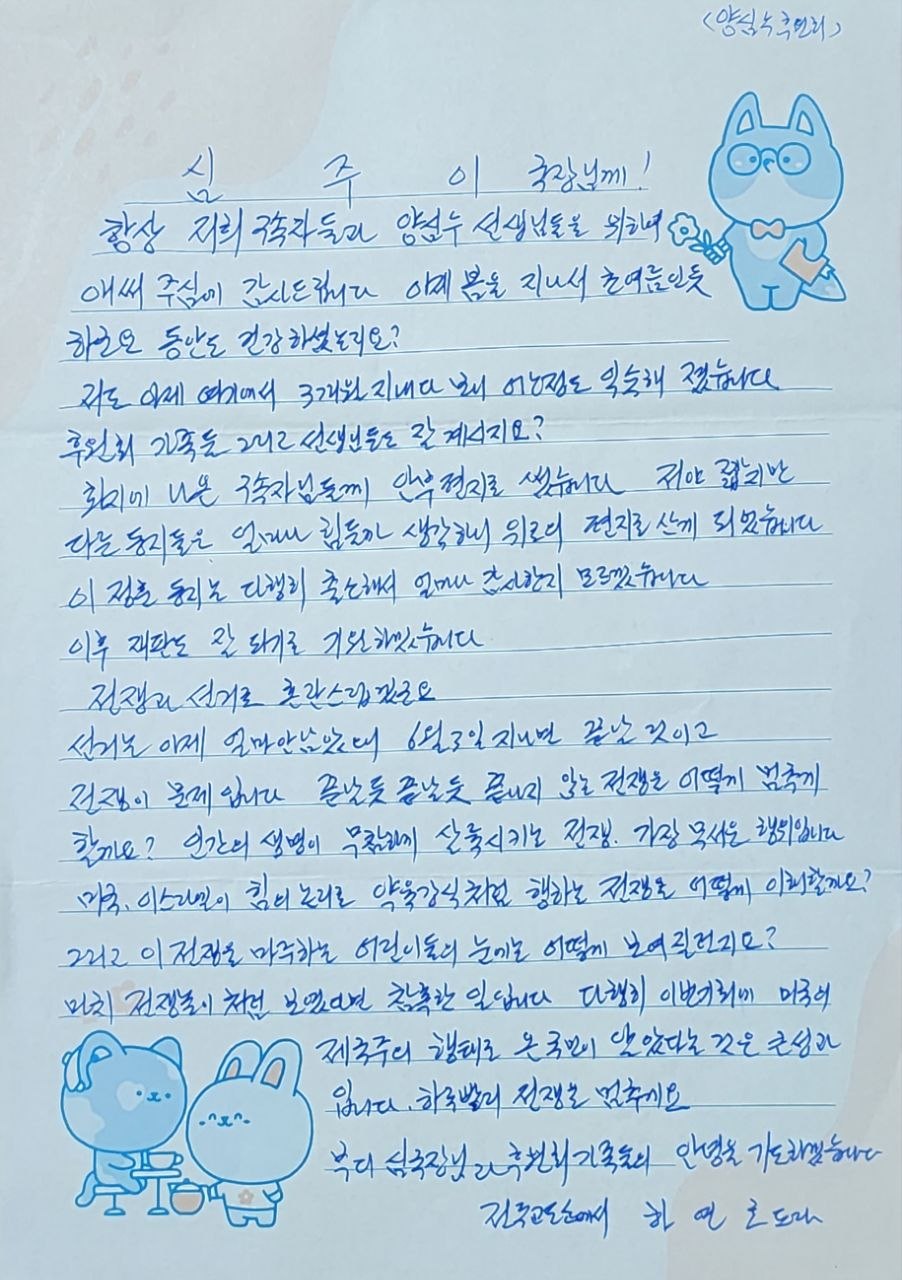 <양심수후원회>
심 주 이 국장님께!
항상 저희 구속자들과 양심수 선생님들을 위하여
애써 주심에 감사드립니다 이제 봄을 지나서 초여름인듯
하군요 동안도 건강하셨는지요?
저도 이제 여기에서 3개월 지내다 보니 어느정도 익숙해 졌습니다
후원회 가족들 그리고 선생님들도 잘 계시지요?
회지에 나온 구속자님들께 안부편지를 썼습니다 저야 짧지만
다른 동지들은 얼마나 힘들까 생각하니 위로의 편지를 쓰게 되었습니다
이 정훈 동지는 다행히 출소해서 얼마나 감사한지 모르겠습니다
이후 재판도 잘 되기를 기원하겠습니다
전쟁과 선거로 혼란스럽군요
선거는 이제 얼마안남았으며 6월3일 지나면 끝날 것이고
전쟁이 문제입니다 끝날듯 끝날듯 끝나지 않는 전쟁을 어떻게 멈추게
할까요? 인간의 생명이 무참하게 살륙시키는 전쟁. 가장 무서운 행위입니다
미국, 이스라엘이 힘의 논리로 약육강식처럼 행하는 전쟁을 어떻게 이해할까요?
그리고 이 전쟁을 마주하는 어린이들의 눈에는 어떻게 보여질런지요?
마치 전쟁놀이처럼 보였다면 참혹한 일입니다 다행히 이번기회에 미국의
제국주의 행태를 온국민이 알았다는 것은 큰성과
입니다. 하루빨리 전쟁을 멈추게요
부디 심국장님과 후원회가족들의 안녕을 기도하겠습니다
전주교도소에서 하 연 호 드림